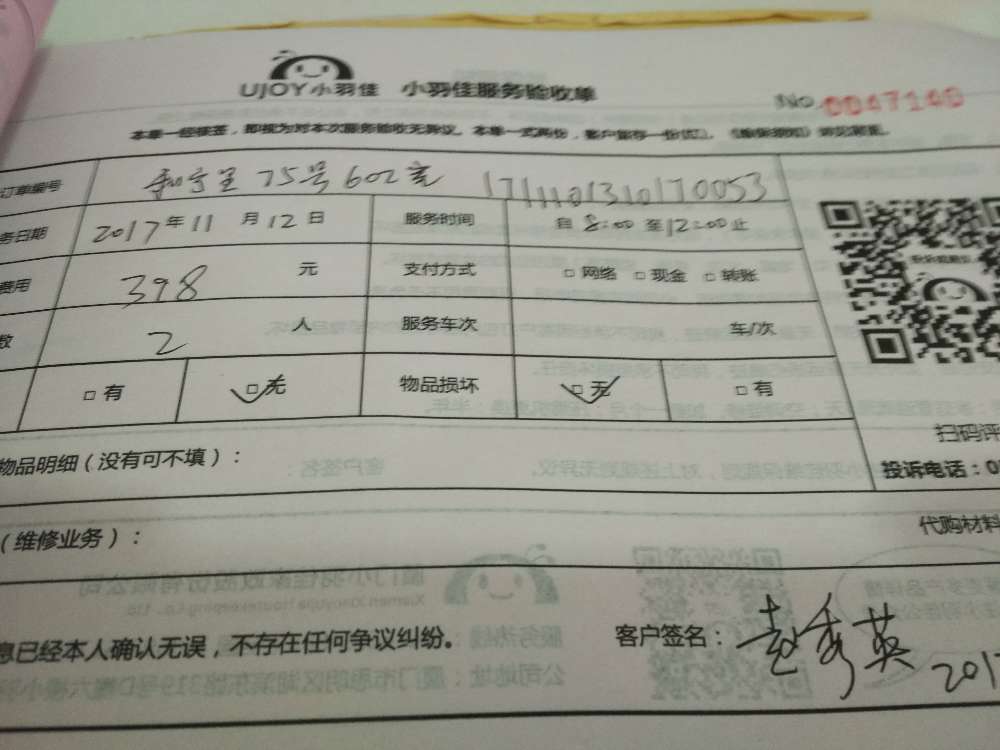 UJOY小羽佳 小羽佳服务验收单
No. 0047140
本单一经接签，即视为对本次服务验收无异议。本单一式两份，客户留存一份
订单编号 75号602室 1711101310170053
务日期 2017年11月12日 服务时间 自8:00至12:00止
费用 398 元 支付方式 □网络 □现金 □转账
数 2 人 服务车次 车/次
□有 □无 物品损坏 □无 □有
扫码评
物品明细（没有可不填）：
投诉电话：0
（维修业务）：
代购材料
息已经本人确认无误，不存在任何争议纠纷。 客户签名：赵秀英 2017